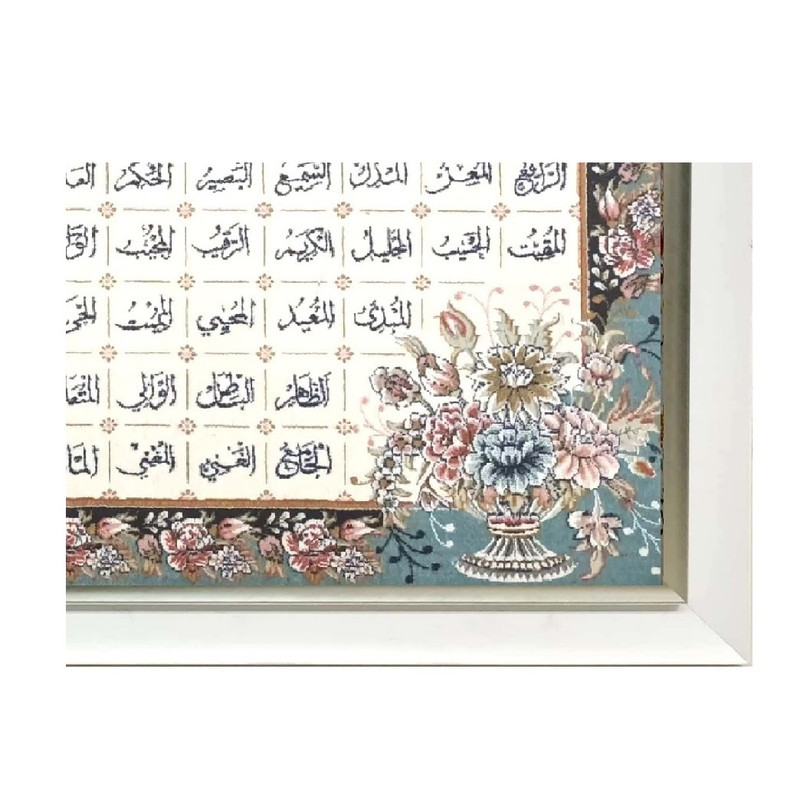 الرافع المعز المذل السميع البصير الحكم
المقيت الحسيب الجليل الكريم الرقيب المجيب
المبدئ المعيد المحيي المميت
الظاهر الباطن الوالي
الجامع الغني المغني